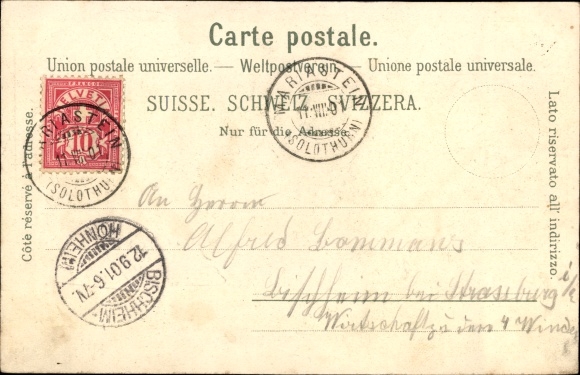 Carte postale.
Union postale universelle. — Weltpostverein. — Unione postale universale.
SUISSE. SCHWEIZ. SVIZZERA.
Nur für die Adresse.
Côté réservé à l'adresse.
Lato riservato all' indirizzo.
FRANCO
HELVETIA
10
MARIASTEIN
(SOLOTHURN)
MARIASTEIN
11.VIII.01
(SOLOTHURN)
BISCHHEIM-
12.9.01.6-7N.
HÖNHEIM
An Herrn
Alfred Bommans
Bischheim bei Strassburg i/e
Wirtschaft zu den 4 Winde